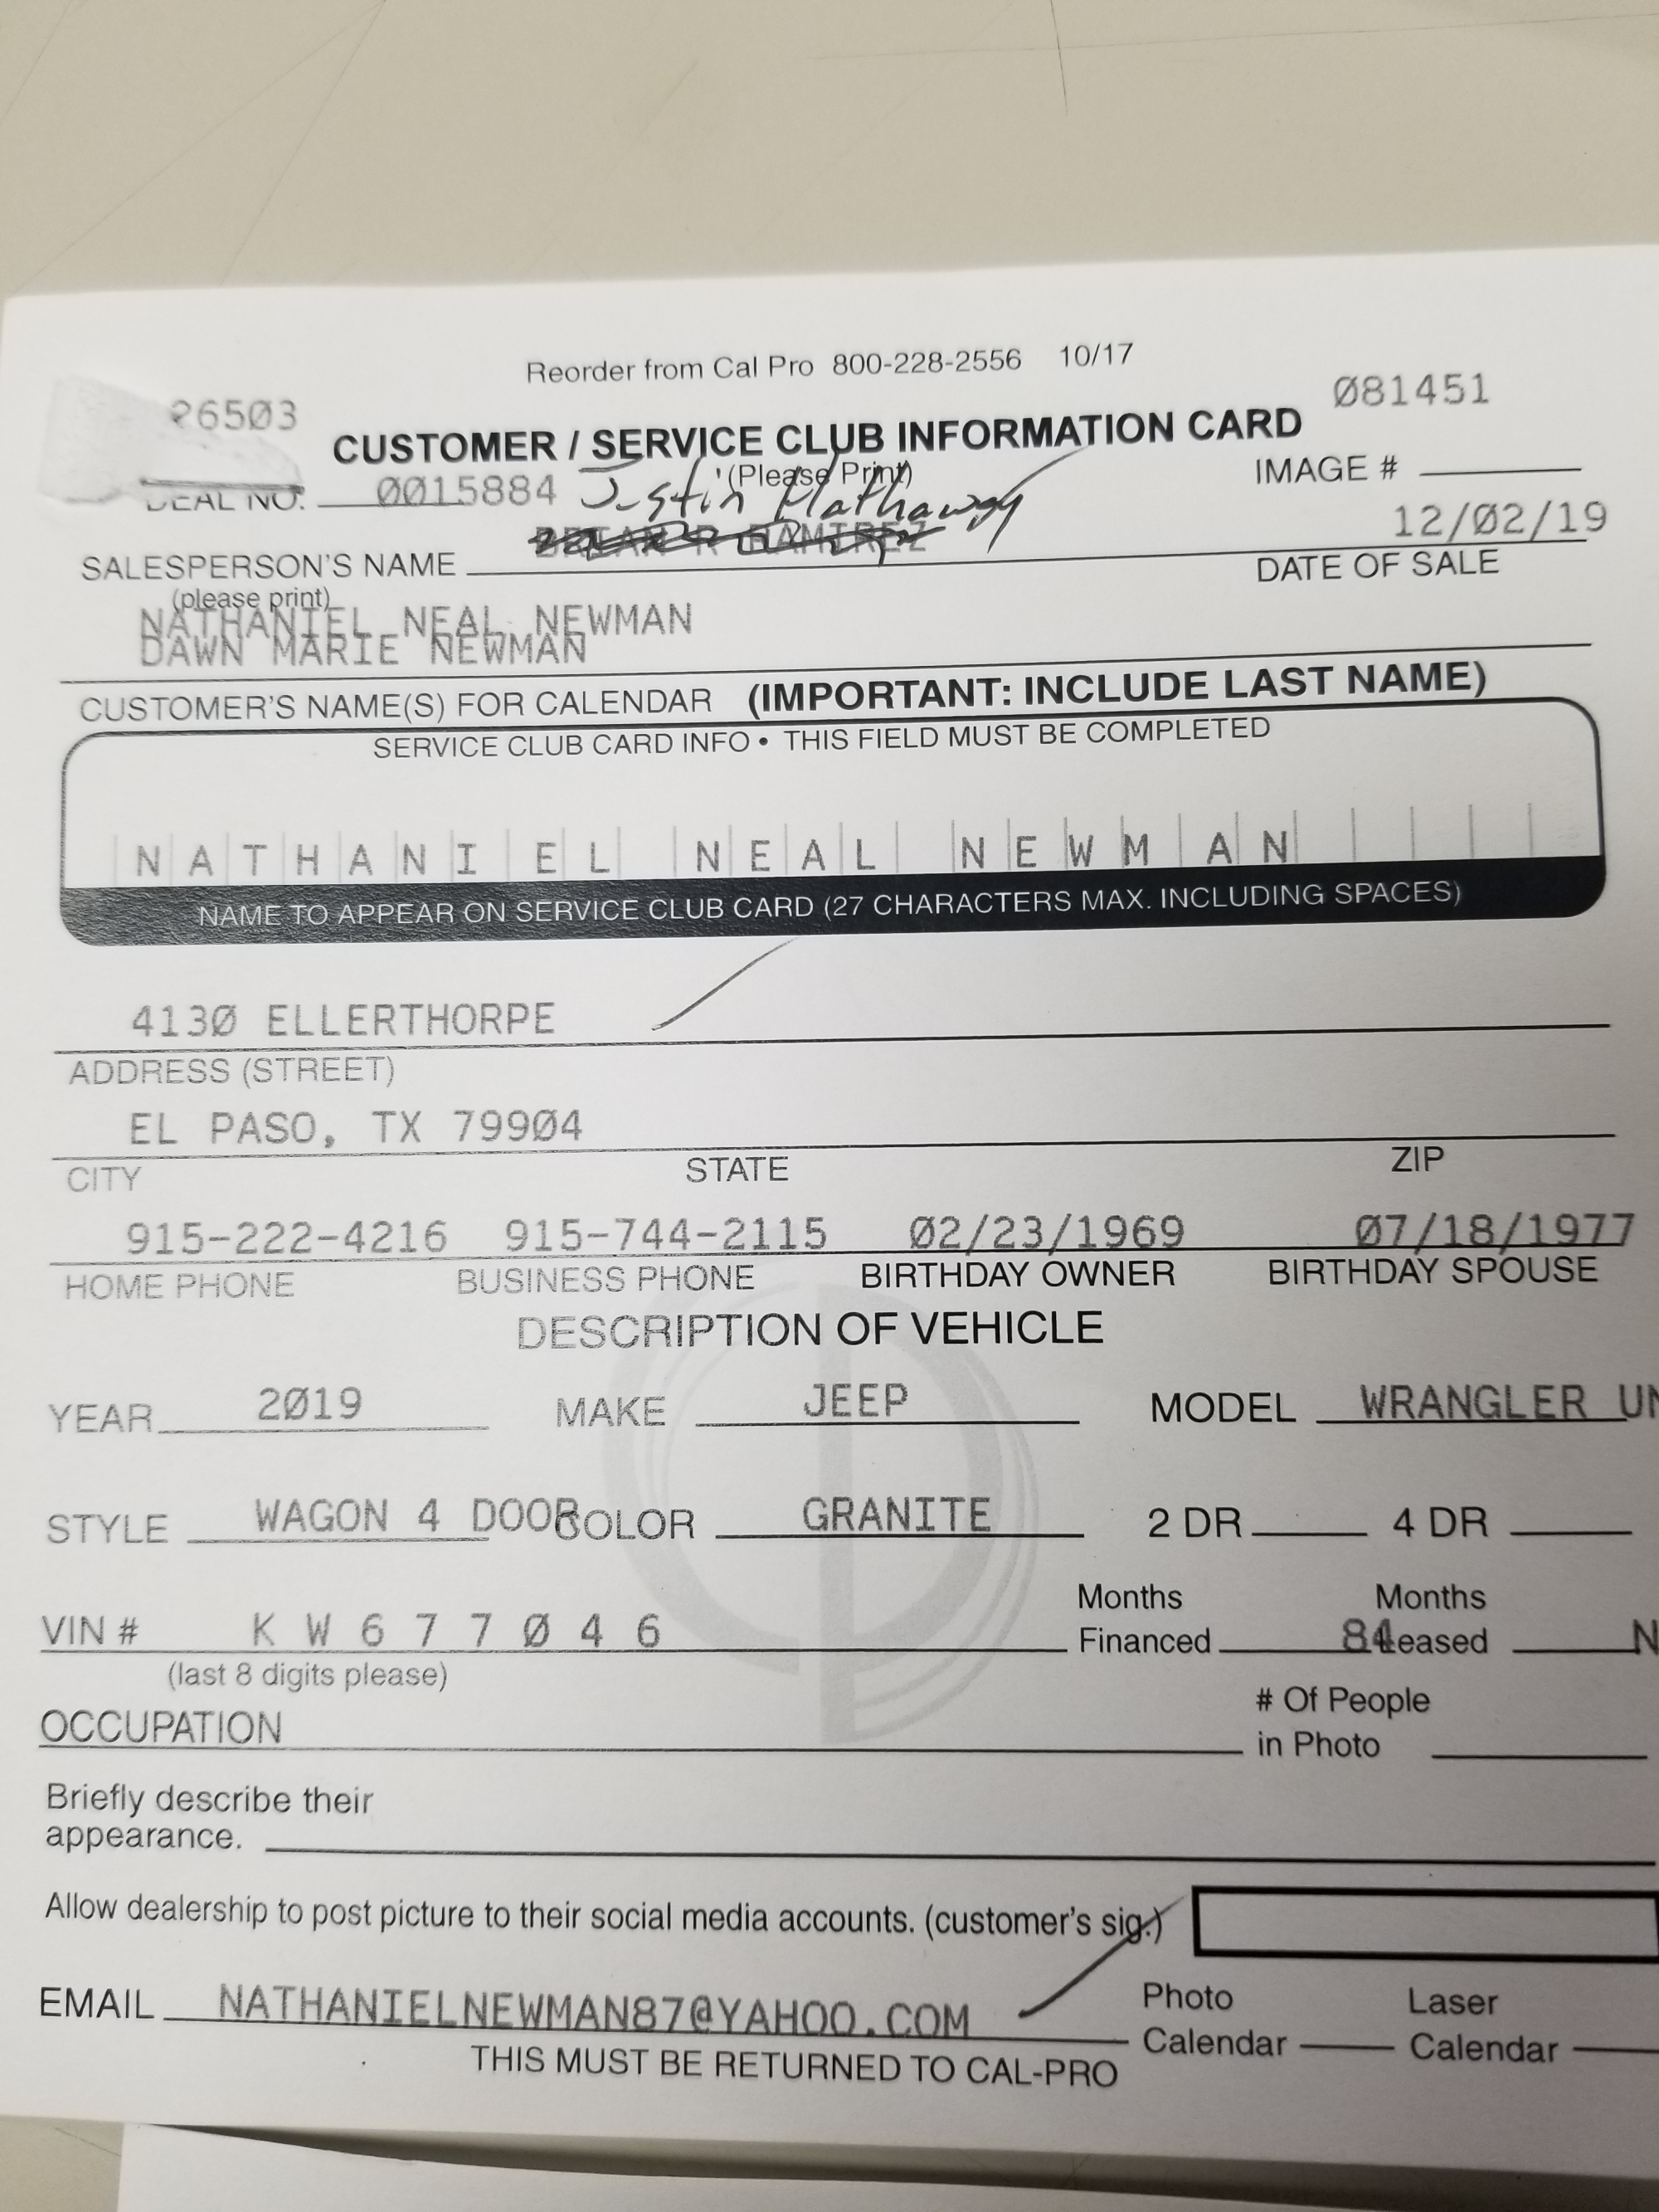 Reorder from Cal Pro 800-228-2556 10/17
26503
Ø81451
CUSTOMER / SERVICE CLUB INFORMATION CARD
(Please Print)
IMAGE #
DEAL NO. 0015884 Justin Hathaway
12/Ø2/19
SALESPERSON'S NAME R RAMIREZ
DATE OF SALE
(please print)
NATHANIEL NEAL NEWMAN
DAWN MARIE NEWMAN
CUSTOMER'S NAME(S) FOR CALENDAR (IMPORTANT: INCLUDE LAST NAME)
SERVICE CLUB CARD INFO • THIS FIELD MUST BE COMPLETED
NATHANIEL NEAL NEWMAN
NAME TO APPEAR ON SERVICE CLUB CARD (27 CHARACTERS MAX. INCLUDING SPACES)
413Ø ELLERTHORPE
ADDRESS (STREET)
EL PASO, TX 799Ø4
CITY STATE ZIP
915-222-4216 915-744-2115 Ø2/23/1969 Ø7/18/1977
HOME PHONE BUSINESS PHONE BIRTHDAY OWNER BIRTHDAY SPOUSE
DESCRIPTION OF VEHICLE
YEAR 2Ø19 MAKE JEEP MODEL WRANGLER UN
STYLE WAGON 4 DOOR COLOR GRANITE 2 DR 4 DR
Months Months
VIN # KW677Ø46 Financed 84 Leased N
(last 8 digits please)
# Of People
OCCUPATION in Photo
Briefly describe their
appearance.
Allow dealership to post picture to their social media accounts. (customer's sig.)
EMAIL NATHANIELNEWMAN87@YAHOO.COM
Photo Laser
Calendar Calendar
THIS MUST BE RETURNED TO CAL-PRO